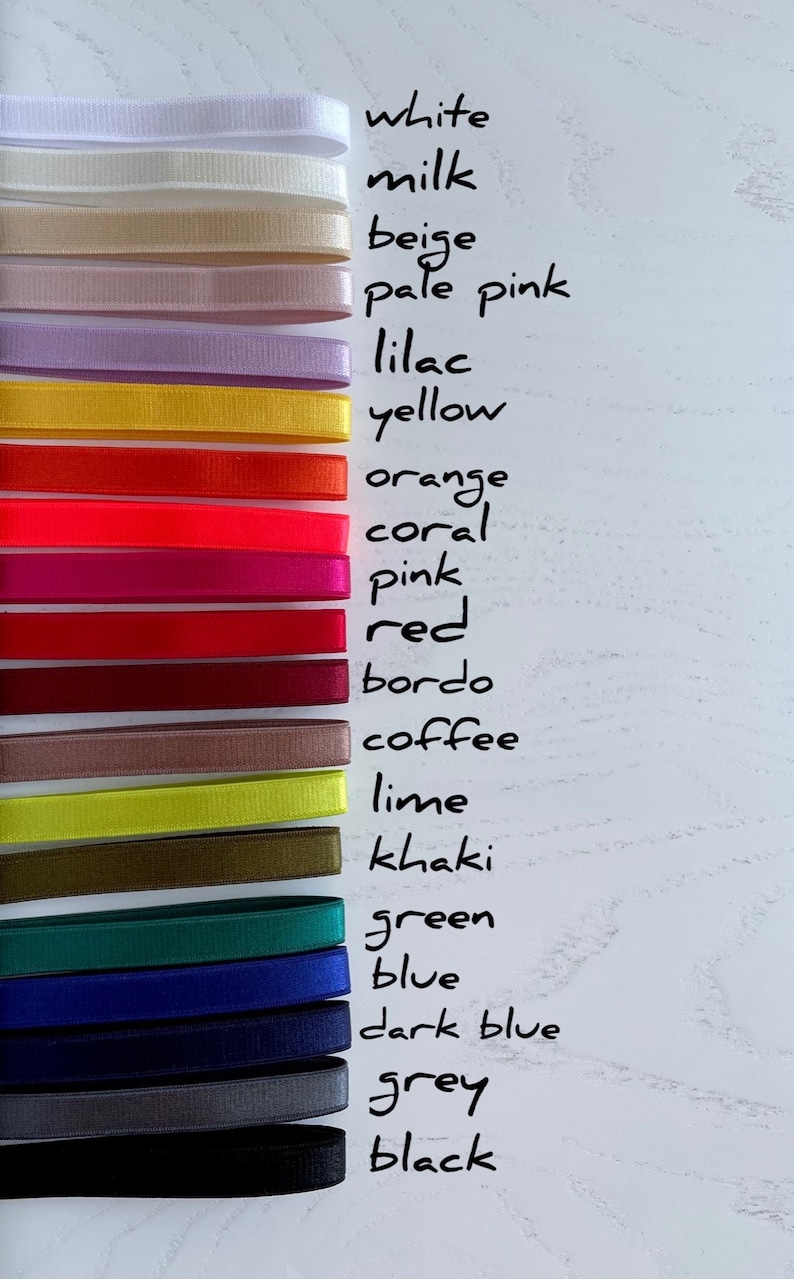 white
milk
beige
pale pink
lilac
yellow
orange
coral
pink
red
bordo
coffee
lime
khaki
green
blue
dark blue
grey
black